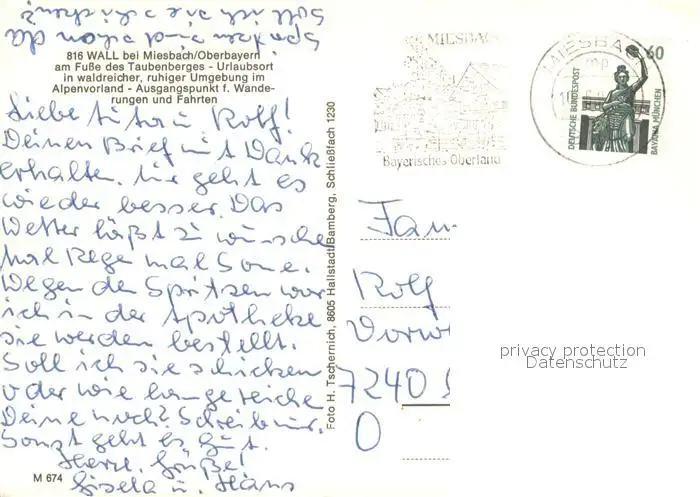 Spritzen sind schon da
Soll ich sie schicken?
816 WALL bei Miesbach/Oberbayern
am Fuße des Taubenberges - Urlaubsort
in waldreicher, ruhiger Umgebung im
Alpenvorland - Ausgangspunkt f. Wande-
rungen und Fahrten
Liebe u Rolf!
Deinen Brief mit Dank
erhalten. Mir geht es
wieder besser. Das
Wetter läßt zu wünsche
mal Regen mal Sonne.
Wegen den Spritzen war
ich in der Apotheke
sie werden bestellt.
Soll ich sie schicken
oder wie lange reiche
Deine noch? Schreib mir.
Sonst geht es gut.
Herzl. Grüße!
Gisela u. Hans
M 674
Foto H. Tschernich, 8605 Hallstadt/Bamberg, Schließfach 1230
MIESBACH
Bayerisches Oberland
MIESBAC
60
DEUTSCHE BUNDESPOST
BAVARIA MÜNCHEN
Fam.
Rolf
7240
privacy protection
Datenschutz